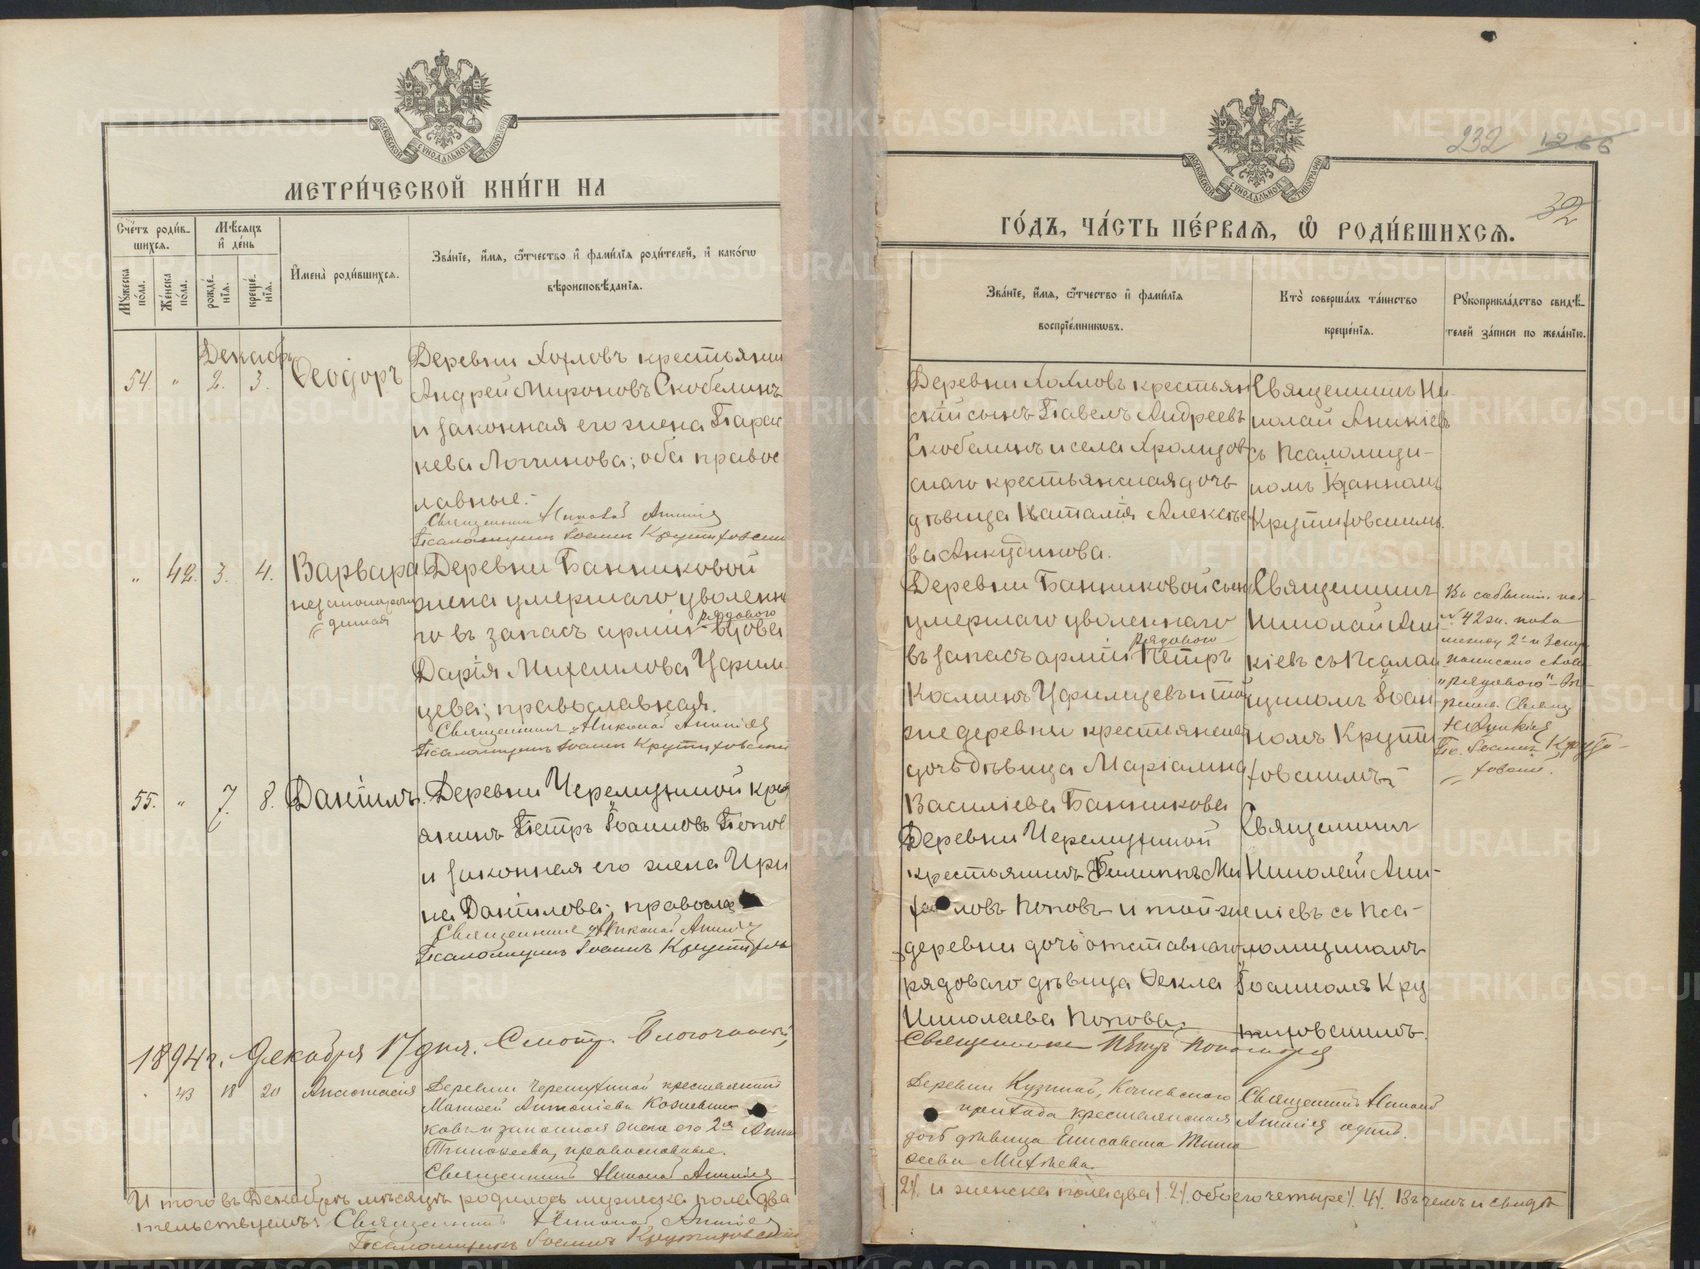 МЕТРИ́ЧЕСКОЙ КНИ́ГИ НА
Счётъ роди́в-
шихся.
Мѣсяцъ
и̑ де́нь
Мꙋ́жеска
по́ла.
Же́нска
по́ла.
рожде́-
нїѧ.
креще́-
нїѧ.
И̑мена̀ роди́вшихсѧ.
Зва́нїе, и́мѧ, ѻ҆́тчество и҆ фами́лїѧ роди́телей, и҆ како́гѡ
вѣроисповѣ́данїѧ.
Декабрь
54. " 2. 3. Ѳеодоръ
Деревни Хохловъ крестьянин
Андрей Мироновъ Скобелинъ
и законная его жена Парас
кева Логгинова; оба правос
лавные.
Священникъ Николай Аникіевъ
Псаломщикъ Іоаннъ Крутиховскій
" 42. 3. 4. Варвара
незаконорож
денная
Деревни Банниковой
жена умершаго уволенна
го въ запасъ арміи рядового вдова
Дарія Михаилова Уфим
цева; православная.
Священникъ Николай Аникіевъ
Псаломщикъ Іоаннъ Крутиховскій
55. " 7. 8. Даніилъ
Деревни Черемухиной крест
янинъ Петръ Іоанновъ Попов
и законная его жена Ири
на Даніилова; правосла
Священникъ Николай Аникіевъ
Псаломщикъ Іоаннъ Крутихов
1894 г. Декабря 17 дня. Смотр. Благочинный,
43 18 20 Анастасія
Деревни Черемухиной крестьянинъ
Матѳей Антоніевъ
ковъ и законная жена его 2я Анна
Тимоѳеева, православные.
Священникъ Николай Аникіевъ
Итого въ Декабрѣ мѣсяцѣ родилось мужеска пола два
тельствуемъ: Священникъ Николай Аникіевъ
Псаломщикъ Іоаннъ Крутиховскій
232 1266
32
ГО́ДЪ, ЧА́СТЬ ПЕ́РВАѦ, Ѽ РОДИ́ВШИХСѦ.
Зва́нїе, и́мѧ, ѻ҆́тчество и҆ фами́лїѧ
воспрїе́мникѡвъ.
Кто̀ соверша́лъ та́инство
креще́нїѧ.
Рꙋкоприкла́дство свидѣ́-
телей за́писи по жела́нїю.
Деревни Хохловъ крестьян
скій сынъ Павелъ Андреевъ
Скобелинъ и села Храмцов
скаго крестьянская дочь
дѣвица Наталія Алексѣе
ва Анкудинова.
Священникъ Ни-
колай Аникіевъ
съ Псаломщи-
комъ Іоанномъ
Крутиховскимъ.
Деревни Банниковой сынъ
умершаго уволеннаго
въ запасъ арміи рядового Петръ
Космикъ Уфимцевъ и той
же деревни крестьянская
дочь дѣвица Маріамна
Василіева Банникова
Священникъ
Николай Ани
кіевъ съ Псалом
щикомъ Іоан
номъ Крути
ховскимъ
Въ
№ 42 ж. пола
между 2й и 3ей
написано слово
"рядового"
Свящ.
Н. Аникіев
Пс. Іоаннъ Крути-
ховскій.
Деревни Черемухиной
крестьянинъ Филиппъ Ми
хайловъ Поповъ и той же
деревни дочь отставнаго
рядоваго дѣвица Ѳекла
Николаева Попова.
Священникъ
Николай Ани-
кіевъ съ Пса-
ломщикомъ
Іоанномъ Кру
тиховскимъ.
Священникъ Петръ Пономаревъ
Деревни
прихода крестьянская
дочь дѣвица Елисавета Тимо
ѳеева Михѣева.
Священникъ Николай
Аникіевъ одинъ.
2/. и женска пола два /2/. обоего четыре /4/. Въ чемъ и свидѣ
METRIKI.GASO-URAL.RU